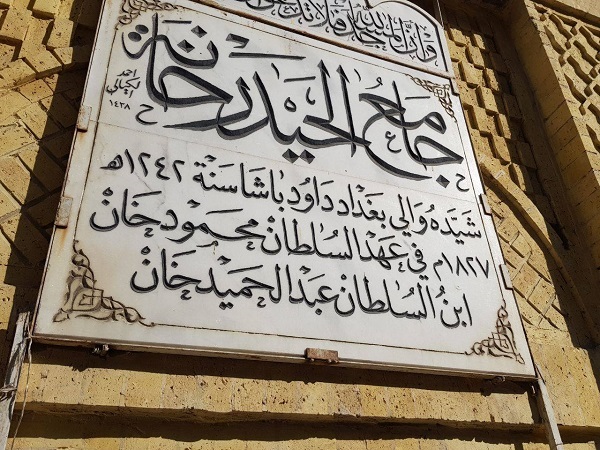 وأن المساجد لله فلا تدعوا
جامع الحيدرخانة
١٤٣٨
شيّده والي بغداد داود باشا سنة ١٢٤٢هـ
١٨٢٧م في عهد السلطان محمود خان
ابن السلطان عبد الحميد خان